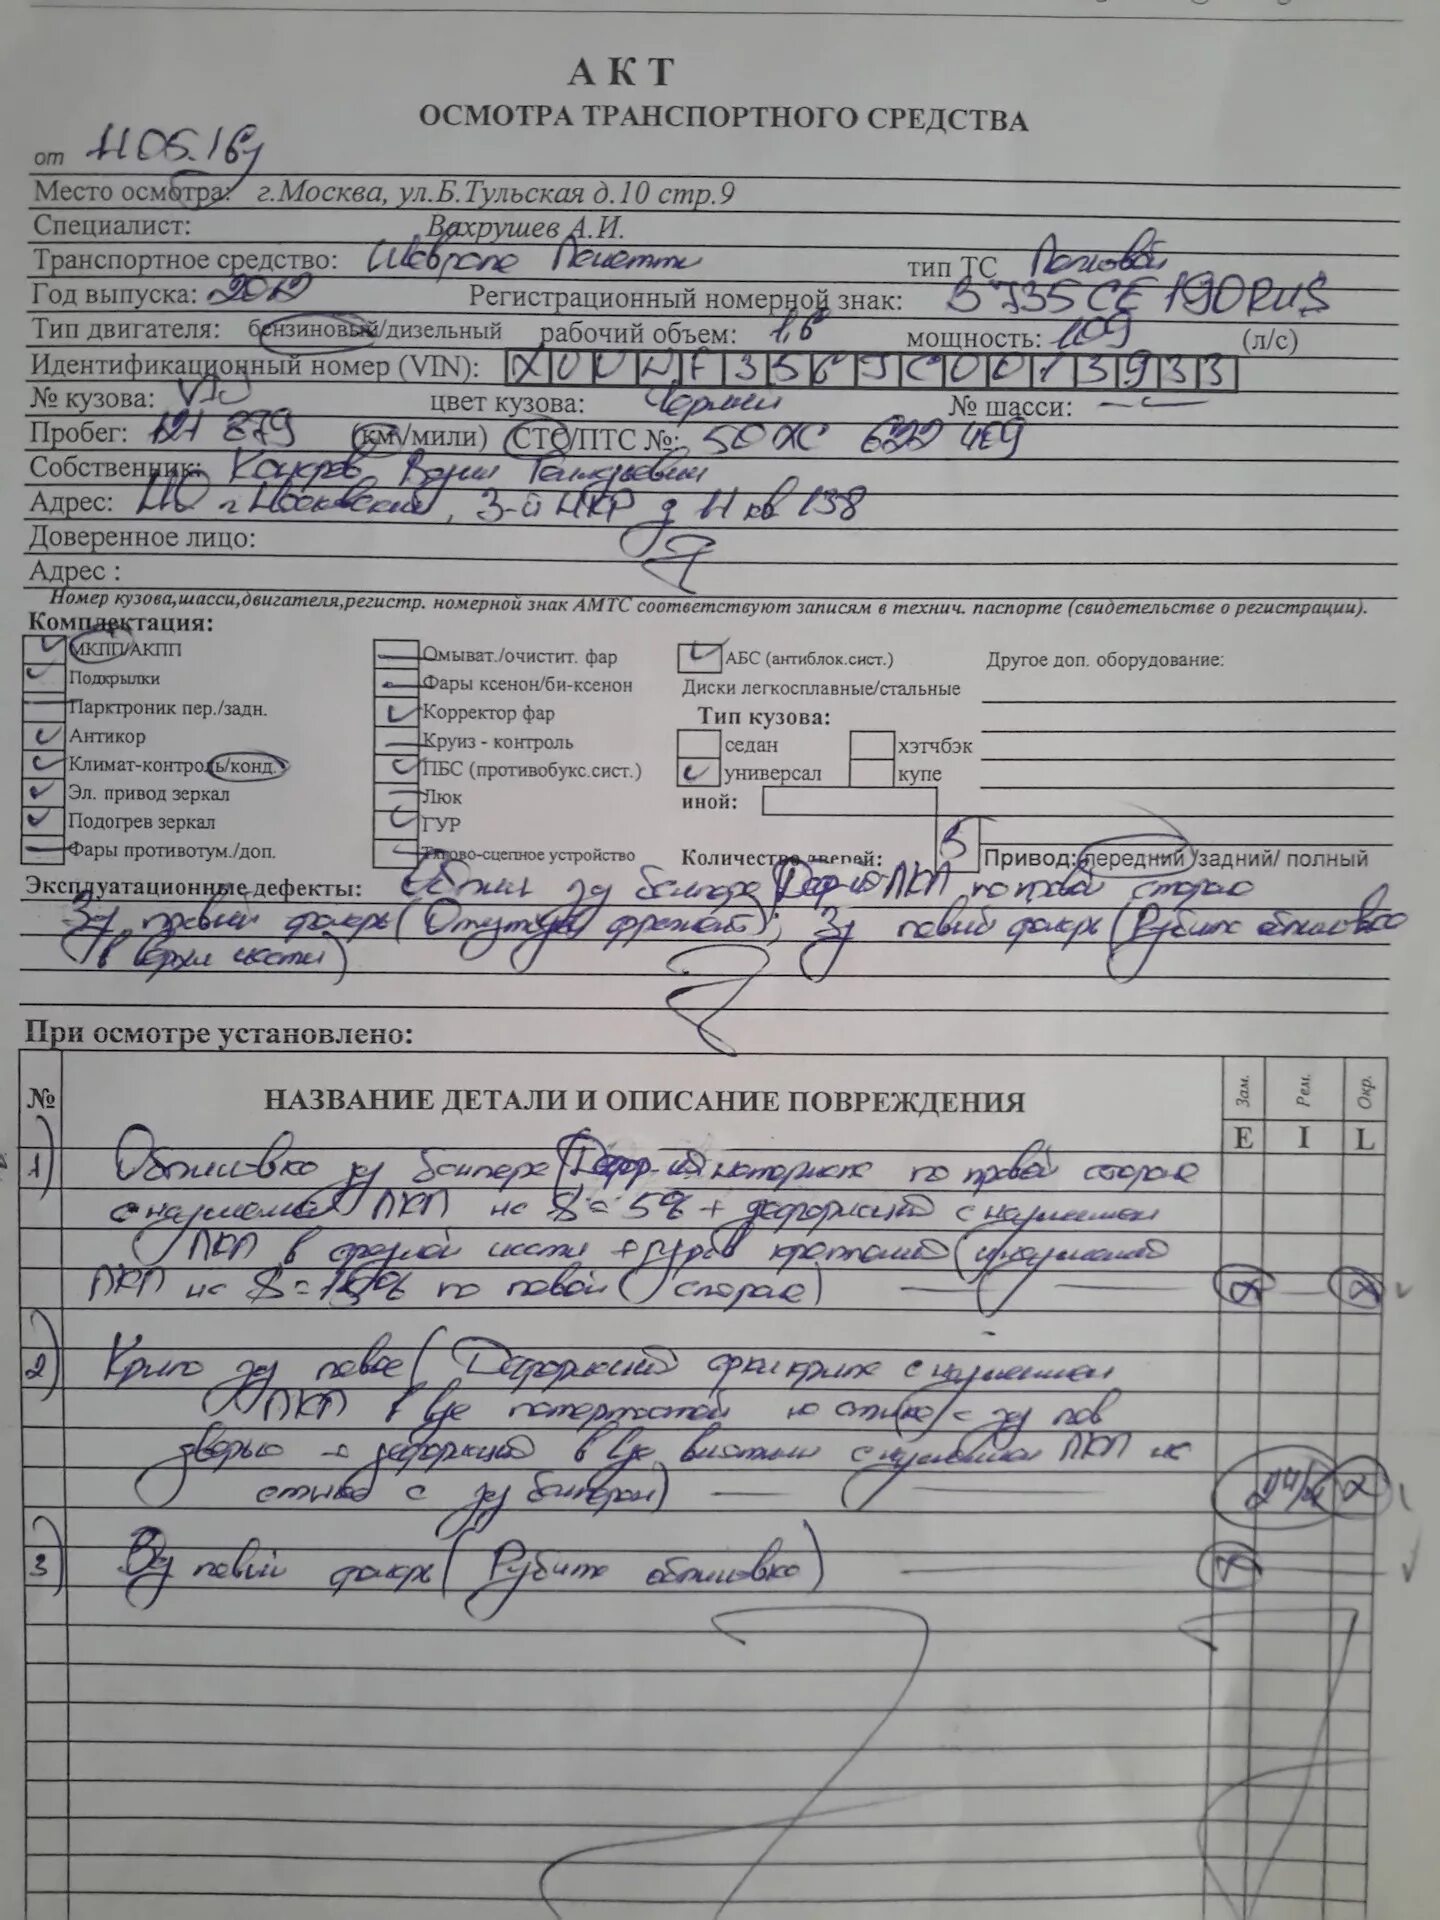 АКТ
ОСМОТРА ТРАНСПОРТНОГО СРЕДСТВА
от 11.05.16г
Место осмотра: г.Москва, ул.Б.Тульская д.10 стр.9
Специалист: Вахрушев А.И.
Транспортное средство: Шевроле Лачетти тип ТС Легковой
Год выпуска: 2012 Регистрационный номерной знак: В 735 СЕ 190RUS
Тип двигателя: бензиновый/дизельный рабочий объем: 1,6 мощность: 109 (л/с)
Идентификационный номер (VIN):
№ кузова: VIN цвет кузова: Черный № шасси: —
Пробег: 121 879 (км/мили) СТС/ПТС №: 50 ХС 622 409
Собственник:
Адрес: МО г Московский, 3-й МКР д 11 кв 138
Доверенное лицо:
Адрес :
Номер кузова,шасси,двигателя,регистр. номерной знак АМТС соответствуют записям в технич. паспорте (свидетельстве о регистрации).
Комплектация:
МКПП/АКПП
Подкрылки
Парктроник пер./задн.
Антикор
Климат-контроль/конд.
Эл. привод зеркал
Подогрев зеркал
Фары противотум./доп.
Омыват./очистит. фар
Фары ксенон/би-ксенон
Корректор фар
Круиз - контроль
ПБС (противобукс.сист.)
Люк
ГУР
Тягово-сцепное устройство
АБС (антиблок.сист.)
Диски легкосплавные/стальные
Тип кузова:
седан хэтчбэк
универсал купе
иной:
Количество дверей: 5
Другое доп. оборудование:
Привод: передний /задний/ полный
Эксплуатационные дефекты: зд бампера ЛКП по правой стороне
Зд правый фонарь ( фрагмент); Зд левый фонарь (
в верхн части)
При осмотре установлено:
№ НАЗВАНИЕ ДЕТАЛИ И ОПИСАНИЕ ПОВРЕЖДЕНИЯ Зам. Рем. Окр.
E I L
1) Облицовка зд бампера ( материала по правой стороне
с нарушением ЛКП на S = 5% + деформация с нарушением
ЛКП в средней части +
ЛКП на по левой стороне)
2) Крыло зд левое (Деформация арки крыла с нарушением
ЛКП в виде потертостей на стыке с зд лев
дверью + деформация в виде вмятины с нарушением ЛКП на
стыке с зд бампером)
3) Зд левый фонарь (